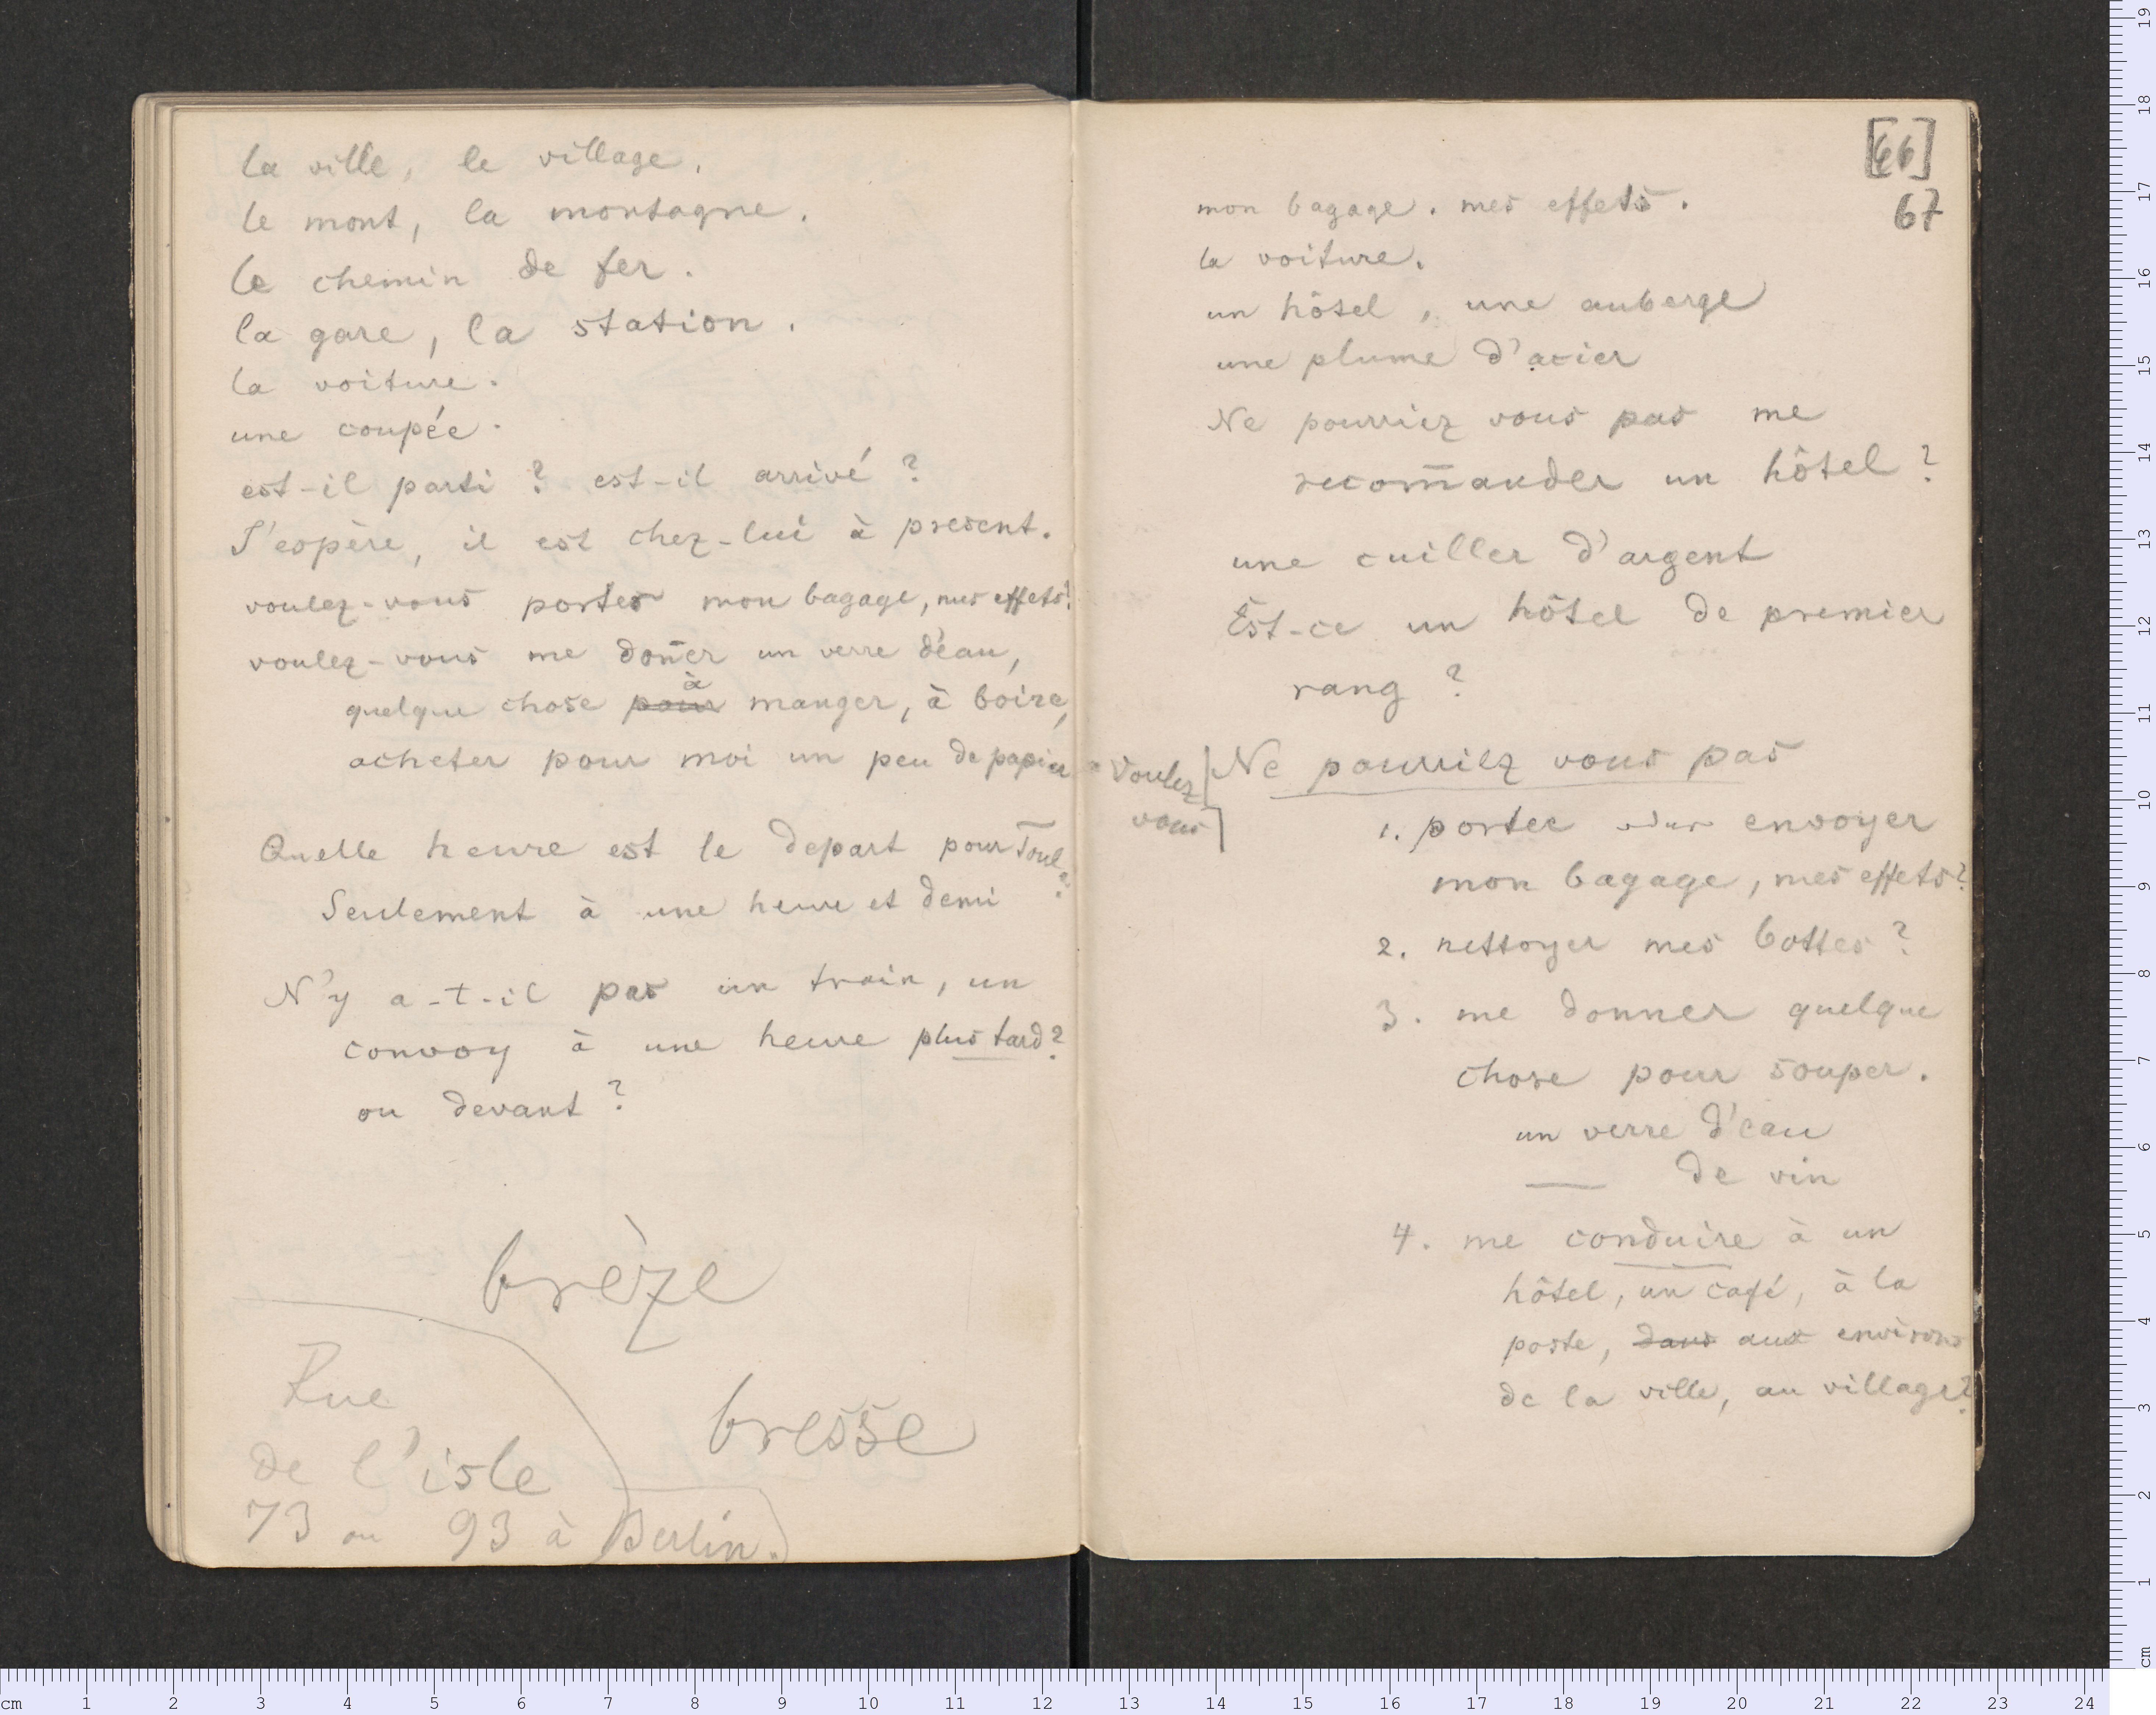 la ville, le village.
le mont, la montagne.
le chemin de fer.
la gare, la station.
la voiture.
une coupée.
est-il parti? est-il arrivé?
J'espère, il est chez-lui à present.
voulez-vous porter mon bagage, mes effets?
voulez-vous me don̄er un verre d'eau,
à
quelque chose pour manger, à boire,
acheter pour moi un peu de papier
Quelle heure est le depart pour Toul?
Seulement à une heure et demi
N'y a-t-il pas un train, un
convoy à une heure plus tard?
ou devant?
brèze
bresse
Rue
de l'isle
73 ou 93 à Berlin.
[66]
67
mon bagage. mes effets.
la voiture.
un hôtel, une auberge
une plume d'acier
Ne pourriez vous pas me
recom̄ander un hôtel?
une cuiller d'argent
Est-ce un hôtel de premier
rang?
Voulez
vous
Ne pourriez vous pas
1. porter oder envoyer
mon bagage, mes effets?
2. nettoyer mes bottes?
3. me donner quelque
chose pour souper.
un verre d'eau
— de vin
4. me conduire à un
hôtel, un café, à la
poste, dans aux environs
de la ville, au village?
cm 1 2 3 4 5 6 7 8 9 10 11 12 13 14 15 16 17 18 19 20 21 22 23 24
cm 1 2 3 4 5 6 7 8 9 10 11 12 13 14 15 16 17 18 19